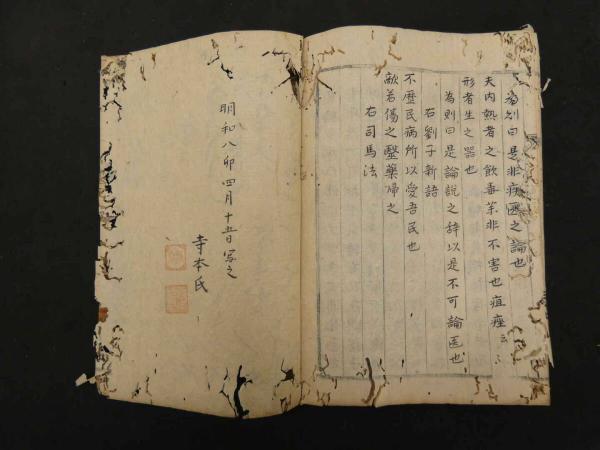 為則曰是非疾医之論也
夫内熱者之飲毒薬非不害也疽痤云云
形者生之器也
為則曰是論説之辞以是不可論医也
右劉子新語
不歴民病所以愛吾民也
敵若傷之毉藥帰之
右司馬法
明和八卯四月十五日写之
寺本氏